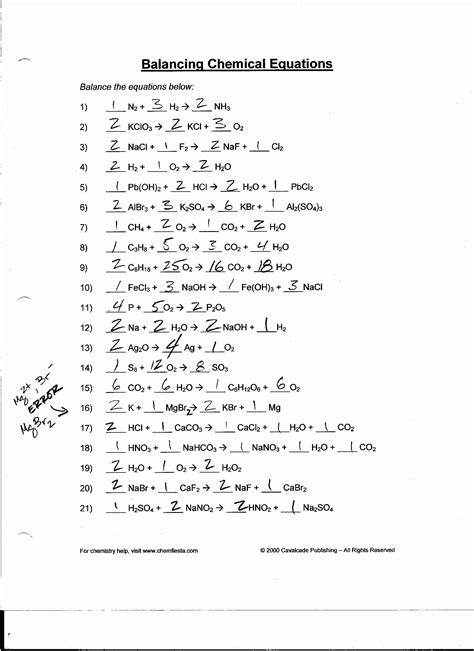 Balancing Chemical Equations
Balance the equations below:
1) 1 N₂ + 3 H₂ → 2 NH₃
2) 2 KClO₃ → 2 KCl + 3 O₂
3) 2 NaCl + 1 F₂ → 2 NaF + 1 Cl₂
4) 2 H₂ + 1 O₂ → 2 H₂O
5) 1 Pb(OH)₂ + 2 HCl → 2 H₂O + 1 PbCl₂
6) 2 AlBr₃ + 3 K₂SO₄ → 6 KBr + 1 Al₂(SO₄)₃
7) 1 CH₄ + 2 O₂ → 1 CO₂ + 2 H₂O
8) 1 C₃H₈ + 5 O₂ → 3 CO₂ + 4 H₂O
9) 2 C₈H₁₈ + 25 O₂ → 16 CO₂ + 18 H₂O
10) 1 FeCl₃ + 3 NaOH → 1 Fe(OH)₃ + 3 NaCl
11) 4 P + 5 O₂ → 2 P₂O₅
12) 2 Na + 2 H₂O → 2 NaOH + 1 H₂
13) 2 Ag₂O → 4 Ag + 1 O₂
14) 1 S₈ + 12 O₂ → 8 SO₃
15) 6 CO₂ + 6 H₂O → 1 C₆H₁₂O₆ + 6 O₂
Mg²⁺ Br⁻
ERROR
MgBr₂
16) 2 K + 1 MgBr₂ → 2 KBr + 1 Mg
17) 2 HCl + 1 CaCO₃ → 1 CaCl₂ + 1 H₂O + 1 CO₂
18) 1 HNO₃ + 1 NaHCO₃ → 1 NaNO₃ + 1 H₂O + 1 CO₂
19) 2 H₂O + 1 O₂ → 2 H₂O₂
20) 2 NaBr + 1 CaF₂ → 2 NaF + 1 CaBr₂
21) 1 H₂SO₄ + 2 NaNO₂ → 2 HNO₂ + 1 Na₂SO₄
For chemistry help, visit www.chemfiesta.com © 2000 Cavalcade Publishing – All Rights Reserved